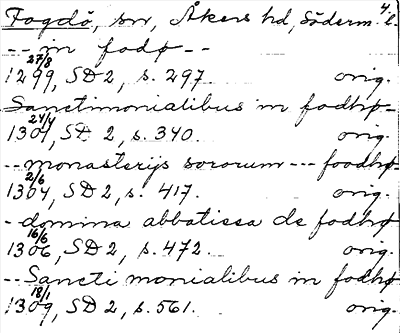 Fogdö, sn, Åkers hd, Söderm. l.
-- in fodø --
1299 27/8, SD 2, s. 297. orig.
Sanctimonialibus in fodhø-
1301 24/4, SD 2, s. 340. orig.
-- monasterijs sororum --- foodhø-
1304 2/6, SD 2, s. 417. orig.
- domina abbatissa de fodhø
1306 16/6, SD 2, s. 472. orig.
-- Sancti monialibus in fodhø
1309 18/1, SD 2, s. 561. orig.